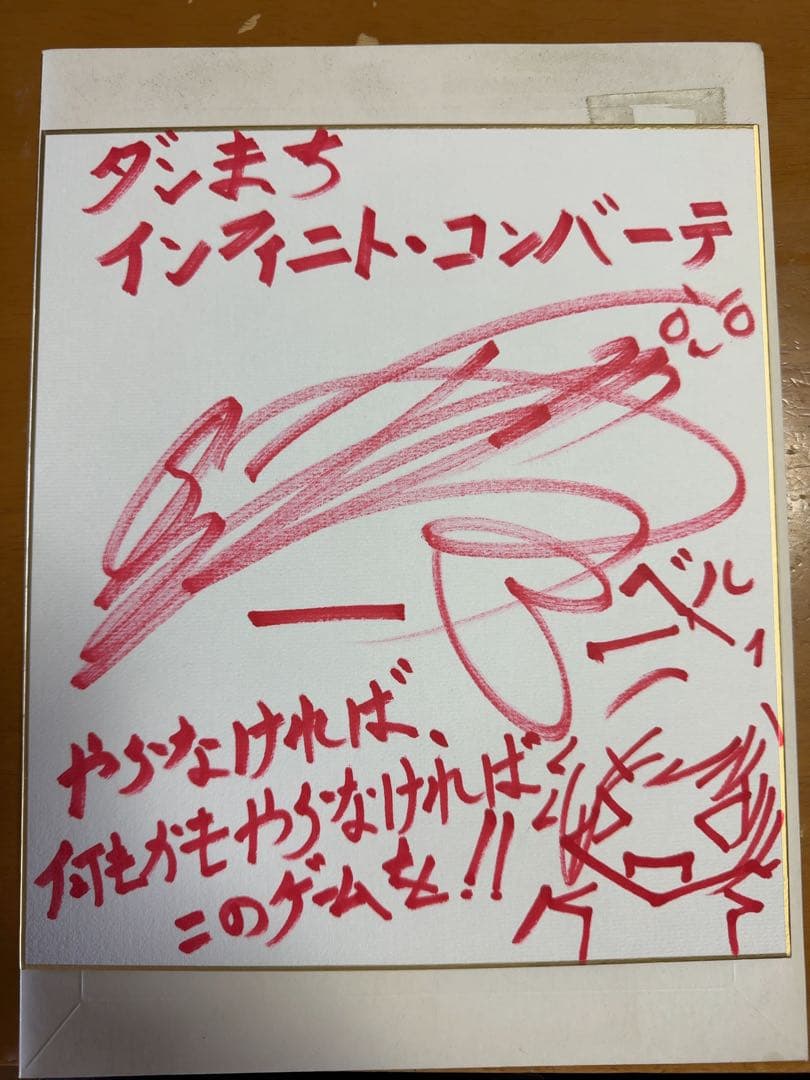 ダンまち
インフィニト・コンバーテ
ベル
やらなければ、
何もかもやらなければ
このゲームを!!